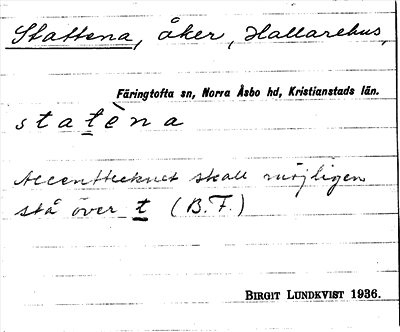 Stattena, åker, Hallarehus,
Färingtofta sn, Norra Åsbo hd, Kristianstads län.
statèna
Accenttecknet skall möjligen
stå över t (B.F.)
BIRGIT LUNDKVIST 1936.